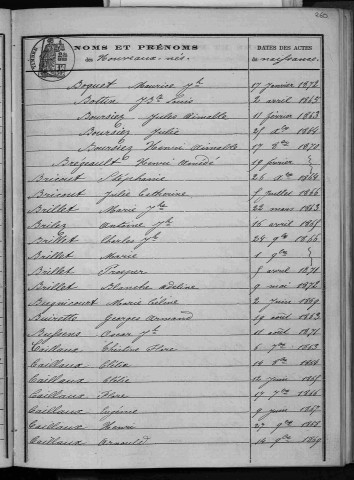 NOMS ET PRÉNOMS DATES DES ACTES
des Nouveaux-nés de naissance
Boquet Maurice Jh 17 janvier 1872
Bottin Jh Louis 2 avril 1865
Boursiez Jules Aimable 11 février 1863
Boursiez Julie
Boursiez Henri Aimable 17 1870
Brégeault Henri Amédé 19 février
Bricout Stéphanie 26
Bricout Julie Catherine 5 juillet 1866
Brillet Marie 22 mars 1863
Antoine Jh 16 avril 1865
Brillet Charles Jh 24 9bre 1866
Brillet Marie 1 9bre
Brillet Prosper 5 avril 1871
Brillet Blanche Adeline 9 mai 1872
Bugnicourt Marie Céline 2 juin 1869
Buirette Georges Armand 19 août 1863
Oscar Jh 11 août 1871
Caillaux Flore 6 7bre 1863
Caillaux Clélie 14 8bre 1864
Caillaux Clélie 12 juin 1865
Caillaux Flore 17 7bre 1866
Caillaux Eugénie 9 juin 1867
Caillaux Henri 27 9bre 1868
Caillaux Arnould 14 9bre 1869